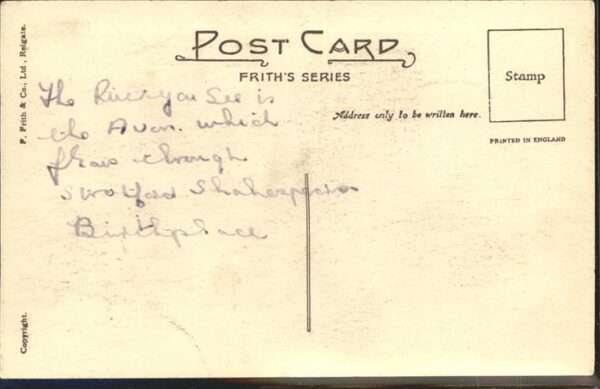 POST CARD
FRITH'S SERIES
Stamp
Address only to be written here.
PRINTED IN ENGLAND
F. Frith & Co., Ltd., Reigate.
Copyright.
The River you See is
the Avon. which
flows through
Stratford Shakespears
Birthplace